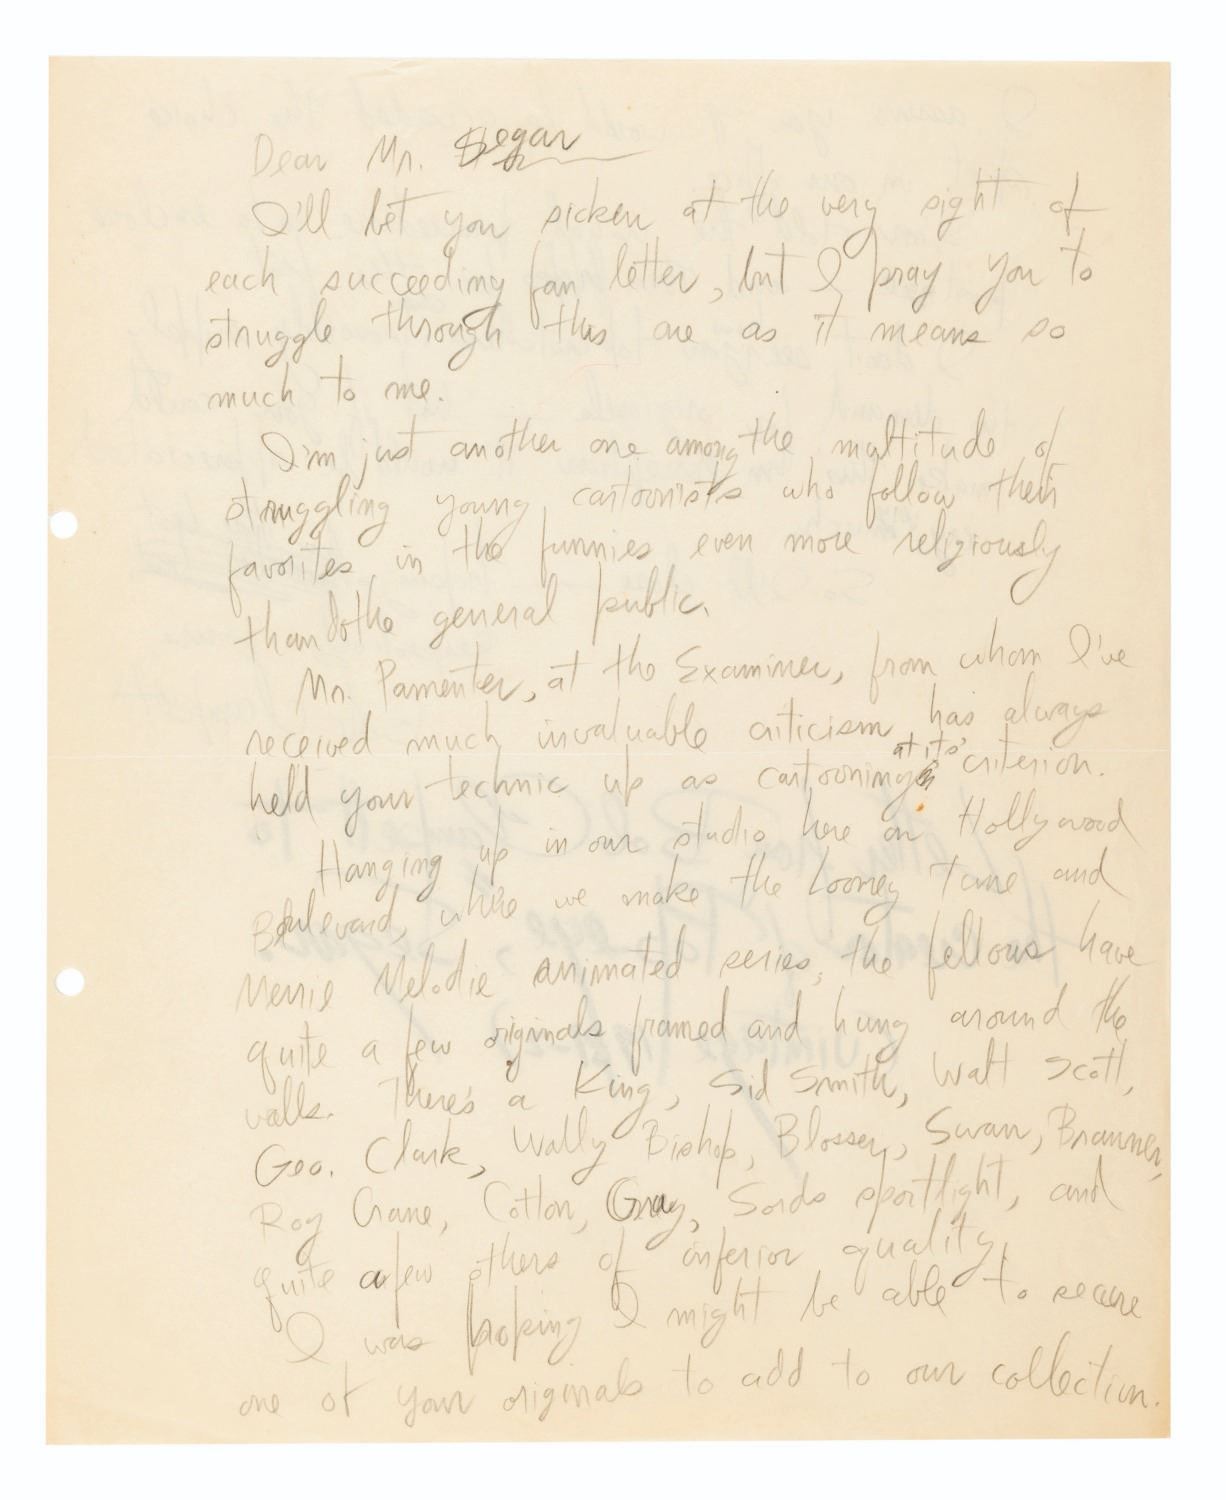 Dear Mr. Segar
I'll bet you sicken at the very sight of
each succeeding fan letter, but I pray you to
struggle through this one as it means so
much to me.
I'm just another one among the multitude of
struggling young cartoonists who follow their
favorites in the funnies even more religiously
than do the general public.
Mr. Parmenter, at the Examiner, from whom I've
received much invaluable criticism has always
held your technic up as cartooning at its' criterion.
Hanging up in our studio here on Hollywood
Boulevard, where we make the Looney Tune and
Merrie Melodie animated series, the fellows have
quite a few originals framed and hung around the
walls. There's a King, Sid Smith, Walt Scott,
Geo. Clark, Wally Bishop, Blosser, Swan, Branner,
Roy Crane, Cotton, Gray, Sords spotlight, and
quite a few others of inferior quality.
I was hoping I might be able to secure
one of your originals to add to our collection.